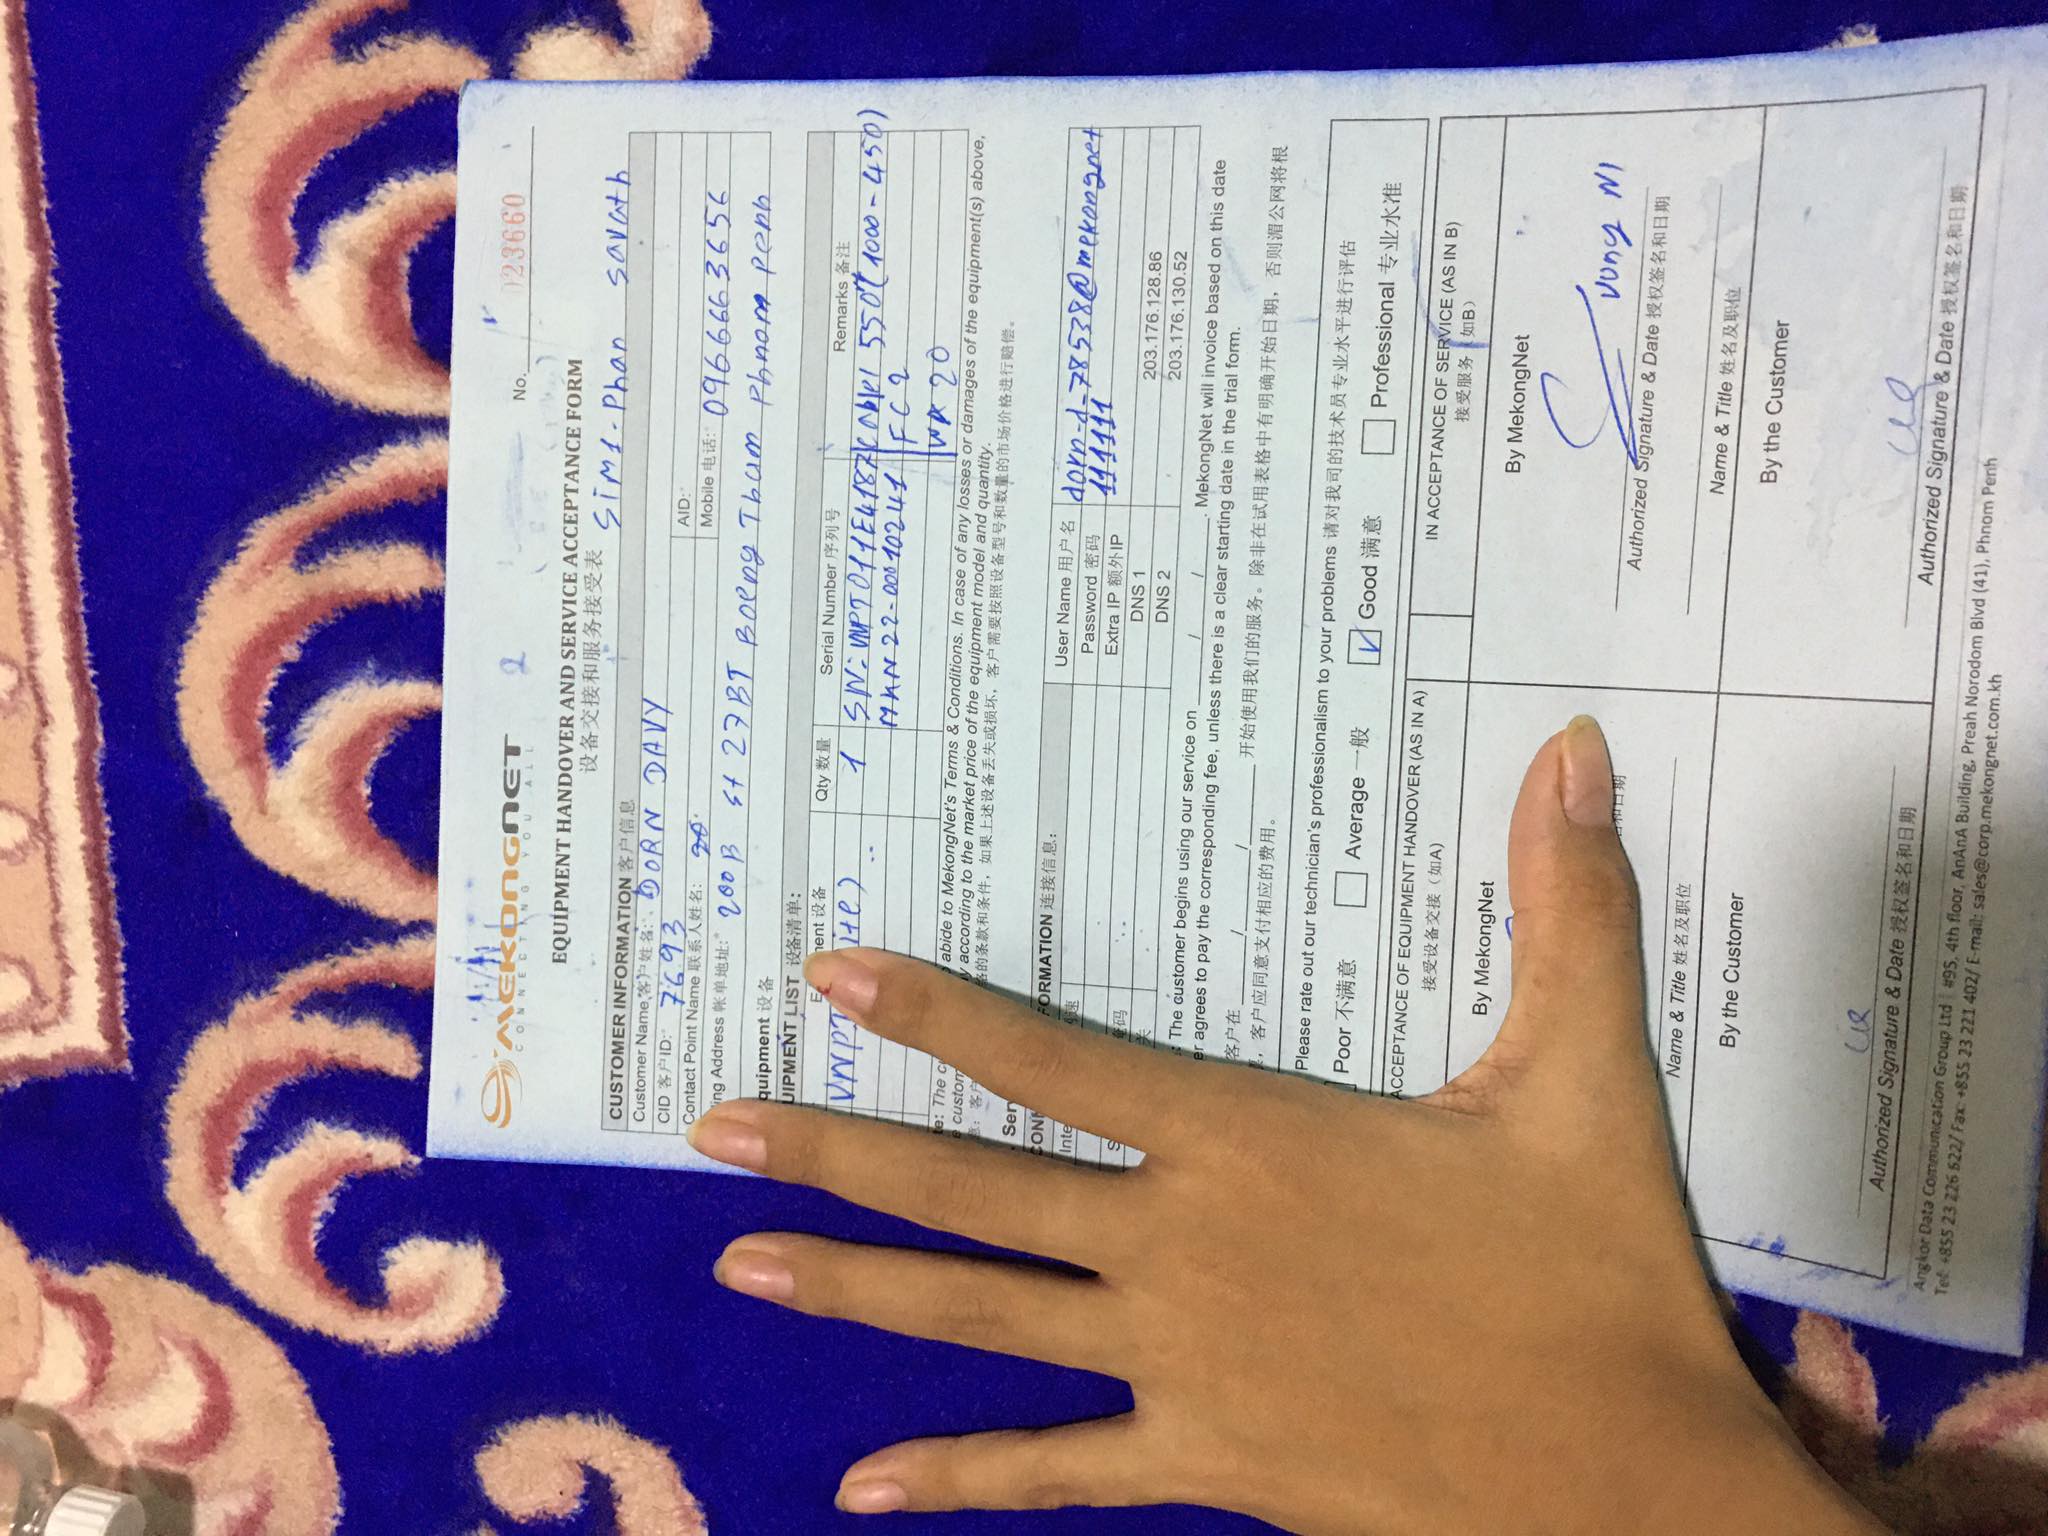 MEKONGNET
CONNECTING YOU ALL
2
No. 023660
EQUIPMENT HANDOVER AND SERVICE ACCEPTANCE FORM
设备交接和服务接受表
SiM1-Phan Savath
CUSTOMER INFORMATION 客户信息
Customer Name 客户姓名:* DORN DAVY
CID 客户ID:* 7693
AID:*
Contact Point Name 联系人姓名:
Mobile 电话:* 0966663656
Address 帐单地址:* 200B st 27BT Boeng Thum Phnom Penh
quipment 设备
UIPMENT LIST 设备清单:
设备 Qty 数量 Serial Number 序列号 Remarks 备注
1 SN: VNPT011E4187 550m (1000-450)
MKN 22-00010241 FC 2
20
The abide to MekongNet's Terms & Conditions. In case of any losses or damages of the equipment(s) above,
according to the market price of the equipment model and quantity.
的条款和条件，如果上述设备丢失或损坏，客户需要按照设备型号和数量的市场价格进行赔偿。
Serv
FORMATION 连接信息:
User Name 用户名 dorn-d-78538@mekongnet
Password 密码 111111
Extra IP 额外IP
DNS 1 203.176.128.86
DNS 2 203.176.130.52
The customer begins using our service on ______/______/______. MekongNet will invoice based on this date
er agrees to pay the corresponding fee, unless there is a clear starting date in the trial form.
客户在 ______/______/______ 开始使用我们的服务。除非在试用表格中有明确开始日期，否则湄公网将根
，客户应同意支付相应的费用。
Please rate out our technician's professionalism to your problems 请对我司的技术员专业水平进行评估
Poor 不满意 Average 一般 Good 满意 Professional 专业水准
ACCEPTANCE OF EQUIPMENT HANDOVER (AS IN A)
接受设备交接（如A）
IN ACCEPTANCE OF SERVICE (AS IN B)
接受服务（如B）
By MekongNet
By MekongNet
Vung Ni
名和日期
Authorized Signature & Date 授权签名和日期
Name & Title 姓名及职位
Name & Title 姓名及职位
By the Customer
By the Customer
Authorized Signature & Date 授权签名和日期
Authorized Signature & Date 授权签名和日期
Angkor Data Communication Group Ltd | #95, 4th floor, AnAnA Building, Preah Norodom Blvd (41), Phnom Penh
Tel: +855 23 226 622/ Fax: +855 23 221 402/ E-mail: sales@corp.mekongnet.com.kh